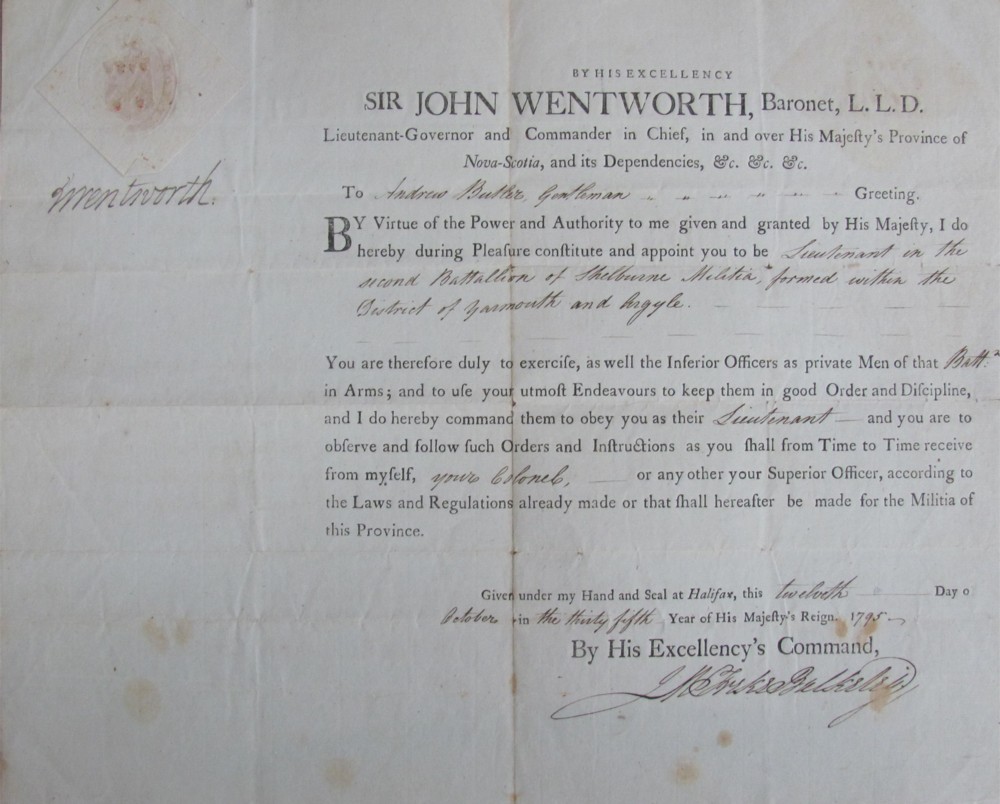 BY HIS EXCELLENCY
SIR JOHN WENTWORTH, Baronet, L.L.D.
Lieutenant-Governor and Commander in Chief, in and over His Majeſty's Province of
Nova-Scotia, and its Dependencies, &c. &c. &c.
JWentworth.
To Andrew Butler, Gentleman " " " " " Greeting.
BY Virtue of the Power and Authority to me given and granted by His Majeſty, I do
hereby during Pleaſure conſtitute and appoint you to be Lieutenant in the
second Battallion of Shelburne Militia, formed within the
District of Yarmouth and Argyle.
You are therefore duly to exerciſe, as well the Inferior Officers as private Men of that Batt.n
in Arms; and to uſe your utmoſt Endeavours to keep them in good Order and Diſcipline,
and I do hereby command them to obey you as their Lieutenant — and you are to
obſerve and follow ſuch Orders and Inſtructions as you ſhall from Time to Time receive
from myſelf, your Colonel, — or any other your Superior Officer, according to
the Laws and Regulations already made or that ſhall hereafter be made for the Militia of
this Province.
Given under my Hand and Seal at Halifax, this twelveth — Day o
October in the thirty fifth Year of His Majeſty's Reign. 1795
By His Excellency's Command,